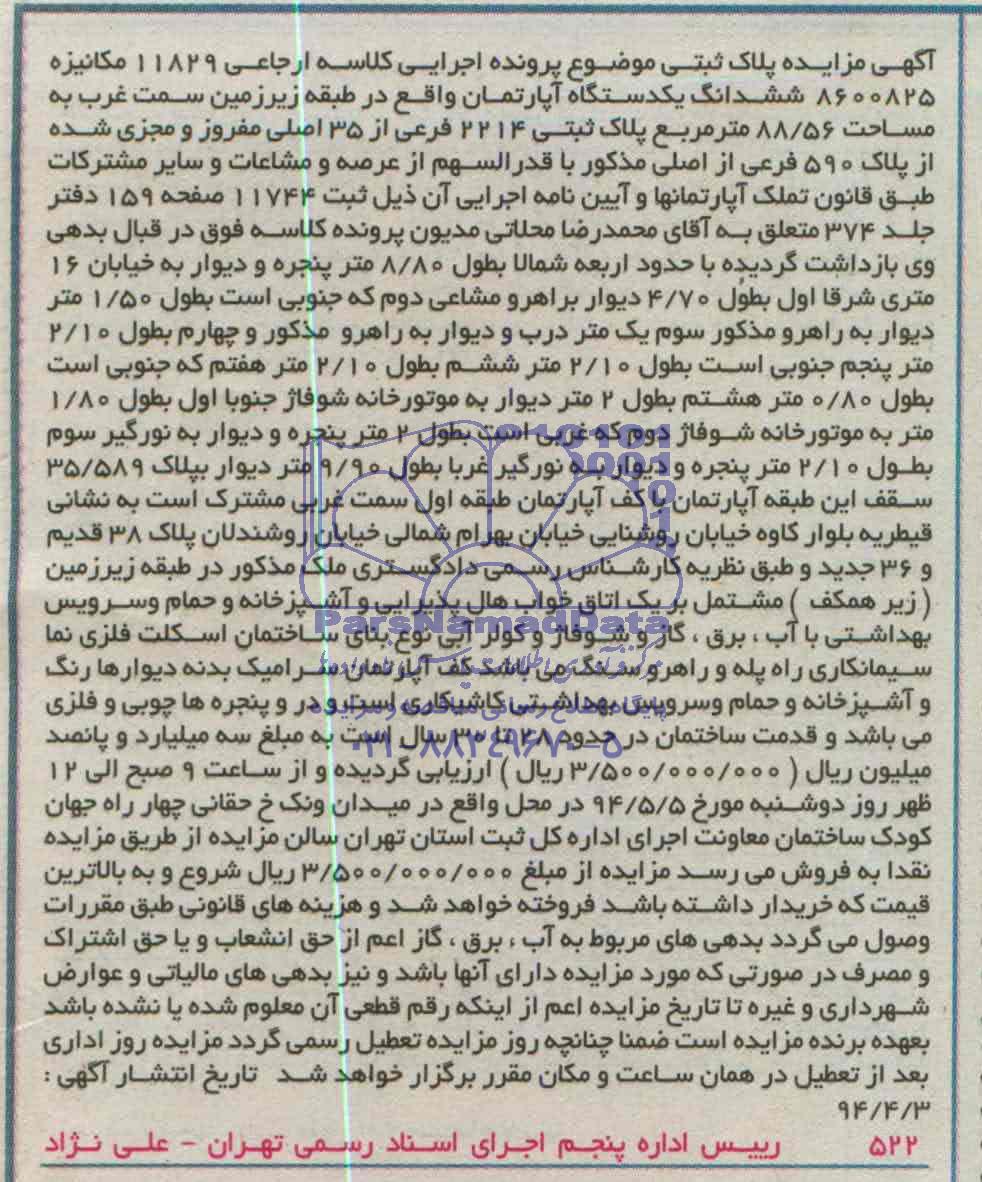 آگهی مزایده پلاک ثبتی موضوع پرونده اجرایی کلاسه ارجاعی ۱۱۸۲۹ مکانیزه
۸۶۰۰۸۲۵ ششدانگ یکدستگاه آپارتمان واقع در طبقه زیرزمین سمت غرب به
مساحت ۸۸/۵۶ مترمربع پلاک ثبتی ۲۲۱۴ فرعی از ۳۵ اصلی مفروز و مجزی شده
از پلاک ۵۹۰ فرعی از اصلی مذکور با قدرالسهم از عرصه و مشاعات و سایر مشترکات
طبق قانون تملک آپارتمانها و آیین نامه اجرایی آن ذیل ثبت ۱۱۷۴۴ صفحه ۱۵۹ دفتر
جلد ۳۷۴ متعلق به آقای محمدرضا محلاتی مدیون پرونده کلاسه فوق در قبال بدهی
وی بازداشت گردیده با حدود اربعه شمالا بطول ۸/۸۰ متر پنجره و دیوار به خیابان ۱۶
متری شرقا اول بطول ۴/۷۰ دیوار براهرو مشاعی دوم که جنوبی است بطول ۱/۵۰ متر
دیوار به راهرو مذکور سوم یک متر درب و دیوار به راهرو مذکور و چهارم بطول ۲/۱۰
متر پنجم جنوبی است بطول ۲/۱۰ متر ششم بطول ۲/۱۰ متر هفتم که جنوبی است
بطول ۰/۸۰ متر هشتم بطول ۲ متر دیوار به موتورخانه شوفاژ جنوبا اول بطول ۱/۸۰
متر به موتورخانه شوفاژ دوم که غربی است بطول ۲ متر پنجره و دیوار به نورگیر سوم
بطول ۲/۱۰ متر پنجره و دیوار به نورگیر غربا بطول ۹/۹۰ متر دیوار بپلاک ۳۵/۵۸۹
سقف این طبقه آپارتمان با کف آپارتمان طبقه اول سمت غربی مشترک است به نشانی
قیطریه بلوار کاوه خیابان روشنایی خیابان بهرام شمالی خیابان روشندلان پلاک ۳۸ قدیم
و ۳۶ جدید و طبق نظریه کارشناس رسمی دادگستری ملک مذکور در طبقه زیرزمین
( زیر همکف ) مشتمل بر یک اتاق خواب هال پذیرایی و آشپزخانه و حمام وسرویس
ParsNamadData
بهداشتی با آب ، برق ، گاز و شوفاژ و کولر آبی نوع بنای ساختمان اسکلت فلزی نما
سیمانکاری راه پله و راهرو سنگ می باشد کف آپارتمان سرامیک بدنه دیوارها رنگ
و آشپزخانه و حمام وسرویس بهداشتی کاشیکاری است و در و پنجره ها چوبی و فلزی
می باشد و قدمت ساختمان در حدود ۲۸ تا ۳۰ سال است به مبلغ سه میلیارد و پانصد
۰۲۱-۸۸۳۴۹۶۷۰-۵
میلیون ریال ( ۳/۵۰۰/۰۰۰/۰۰۰ ریال ) ارزیابی گردیده و از ساعت ۹ صبح الی ۱۲
ظهر روز دوشنبه مورخ ۹۴/۵/۵ در محل واقع در میدان ونک خ حقانی چهار راه جهان
کودک ساختمان معاونت اجرای اداره کل ثبت استان تهران سالن مزایده از طریق مزایده
نقدا به فروش می رسد مزایده از مبلغ ۳/۵۰۰/۰۰۰/۰۰۰ ریال شروع و به بالاترین
قیمت که خریدار داشته باشد فروخته خواهد شد و هزینه های قانونی طبق مقررات
وصول می گردد بدهی های مربوط به آب ، برق ، گاز اعم از حق انشعاب و یا حق اشتراک
و مصرف در صورتی که مورد مزایده دارای آنها باشد و نیز بدهی های مالیاتی و عوارض
شهرداری و غیره تا تاریخ مزایده اعم از اینکه رقم قطعی آن معلوم شده یا نشده باشد
بعهده برنده مزایده است ضمنا چنانچه روز مزایده تعطیل رسمی گردد مزایده روز اداری
بعد از تعطیل در همان ساعت و مکان مقرر برگزار خواهد شد تاریخ انتشار آگهی :
۹۴/۴/۳
۵۲۲ رییس اداره پنجم اجرای اسناد رسمی تهران - علی نژاد